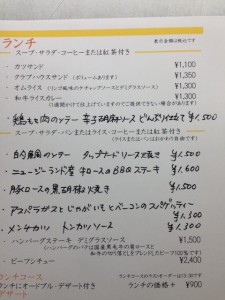 ランチ
表示金額は税込です
スープ・サラダ・コーヒーまたは紅茶付き
・カツサンド ¥1,100
・クラブハウスサンド (ボリュームあります) ¥1,350
・オムライス (リンゴ風味のケチャップソースとデミグラスソース) ¥1,300
・和牛ライスカレー ¥1,300
・鶏もも肉のソテー 辛子胡麻ソース どんぶり仕立て ¥1,500
スープ・サラダ・パンまたはライス・コーヒーまたは紅茶付き
(ライスまたはパンはお代わり自由です)
・白身魚のソテー タップナードソース焼き ¥1,500
・ニュージーランド産 牛ロースのBBQステーキ ¥1,600
・豚ロースの黒胡椒焼き ¥1,500
・アスパラガスとじゃがいもとベーコンのスパゲッティー ¥1,300
・メンチカツ トンカツソース ¥1,300
・ハンバーグステーキ デミグラスソース ¥1,500
・ビーフシチュー ¥2,400
ランチコース
ランチにオードブル・デザート付き ランチの価格+ ¥900